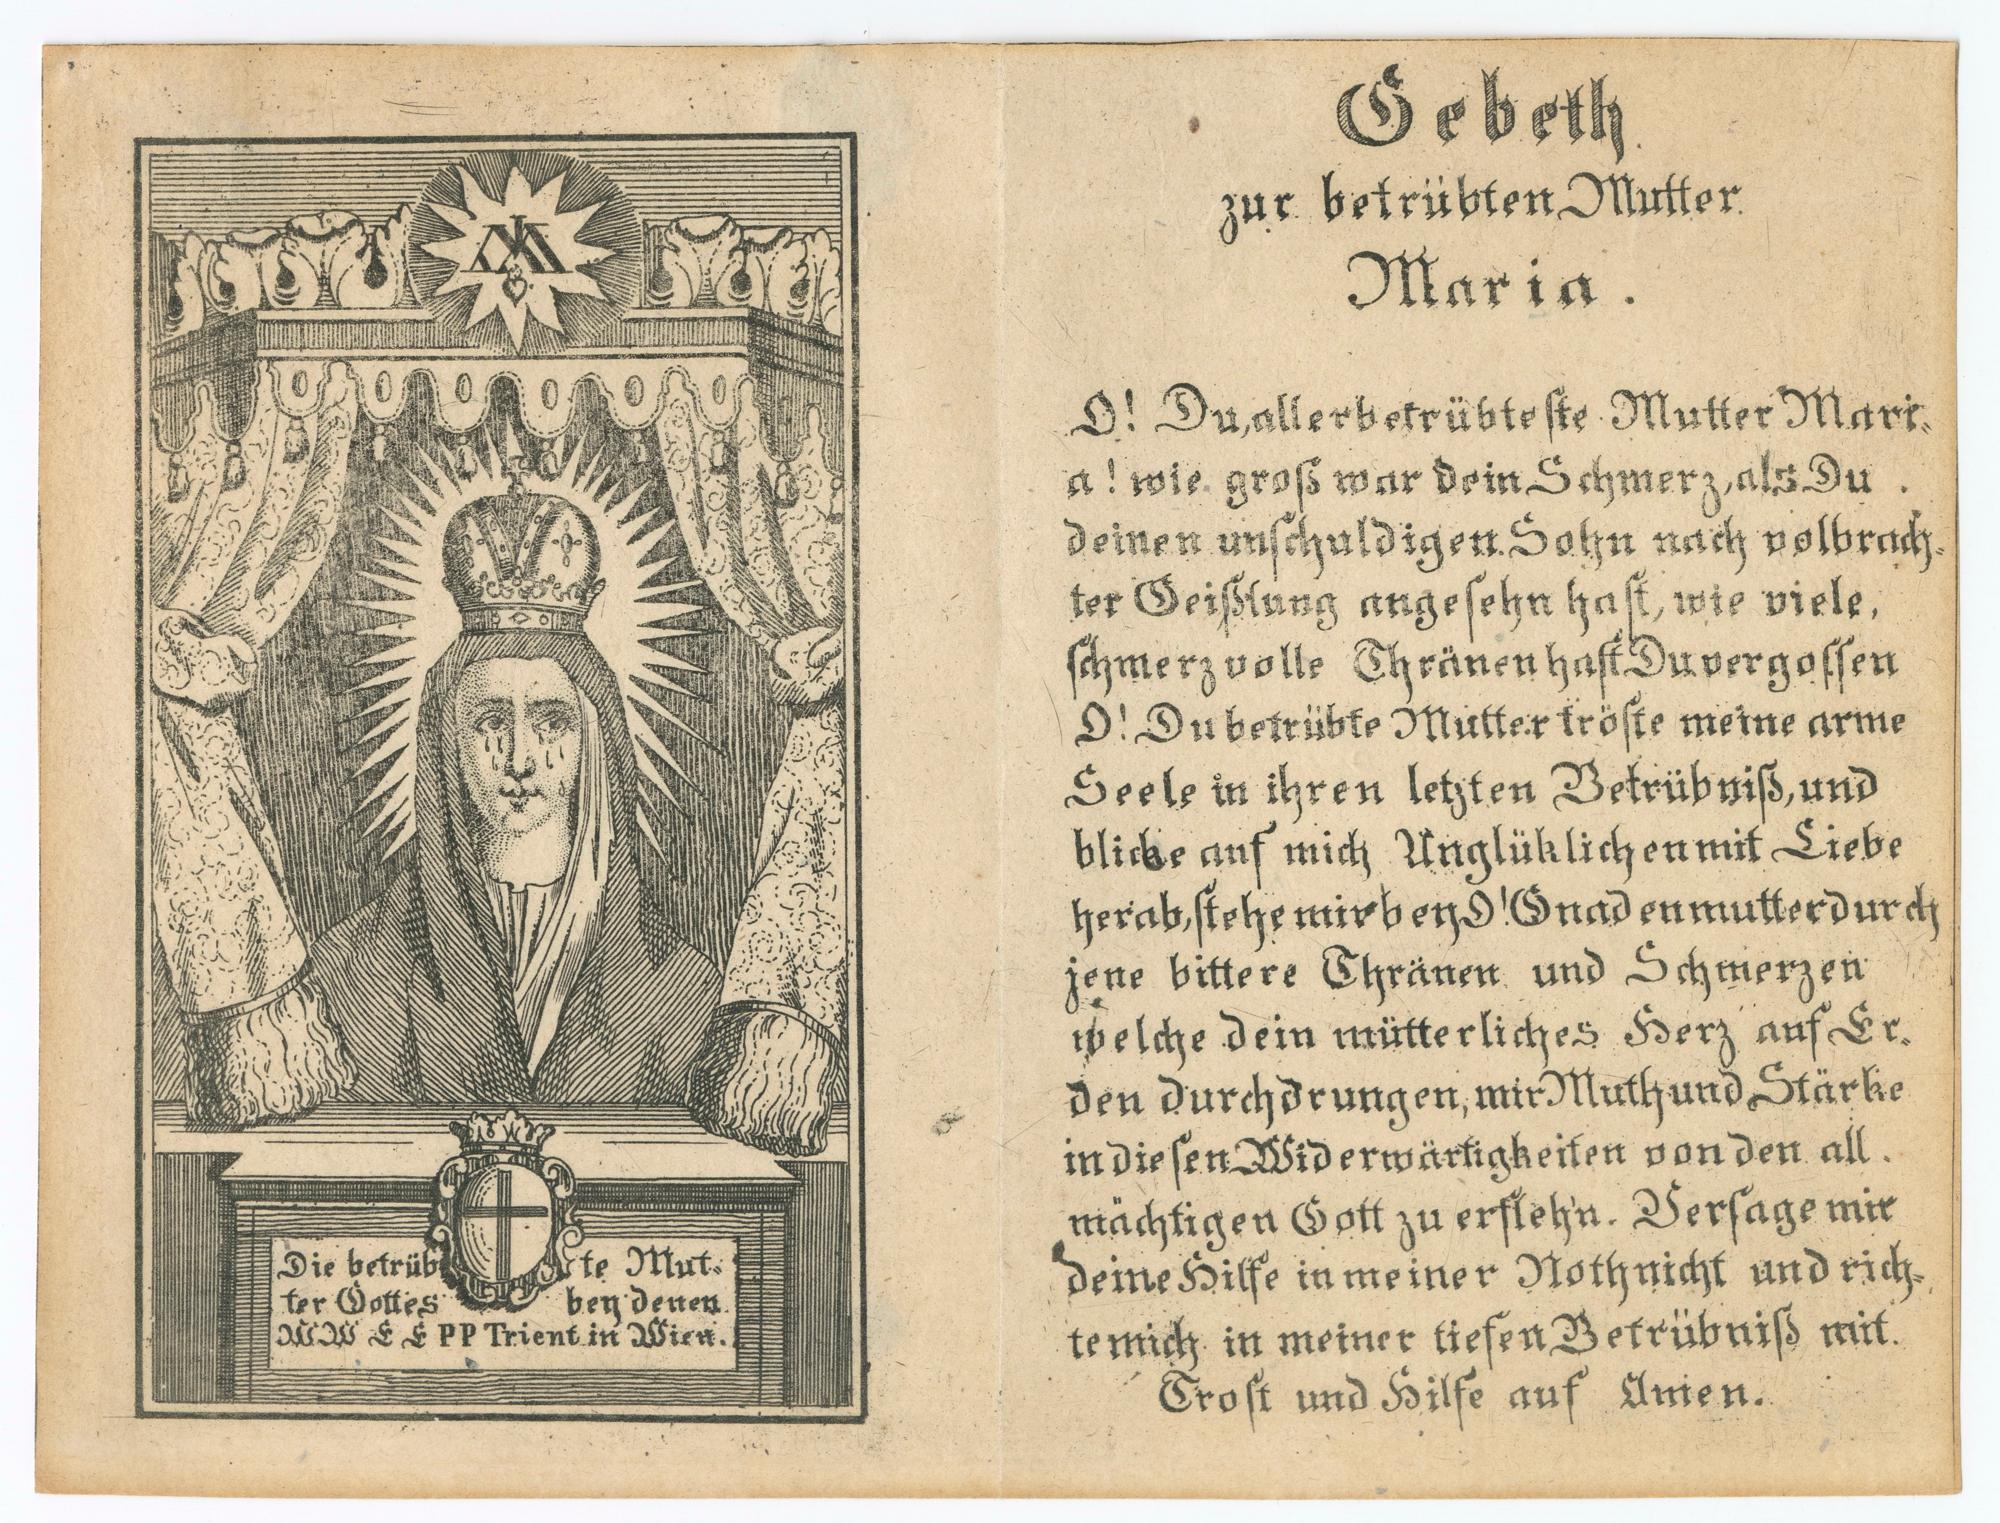 Die betrübte Mut-
ter Gottes bey denen
WW EE PP Trient in Wien.
Gebeth
zur betrübten Mutter
Maria.
O! Du, allerbetrübteste Mutter Mari-
a! wie groß war dein Schmerz, als Du
deinen unschuldigen Sohn nach volbrach-
ter Geißlung angesehn hast, wie viele,
schmerzvolle Thränen hast Du vergossen
O! Du betrübte Mutter tröste meine arme
Seele in ihren letzten Betrübniß, und
blicke auf mich Unglüklichen mit Liebe
herab, stehe mir bey O! Gnadenmutter durch
jene bittere Thränen und Schmerzen
welche dein mütterliches Herz auf Er-
den durchdrungen, mir Muth und Stärke
in diesen Widerwärtigkeiten von den all-
mächtigen Gott zu erflehn. Versage mir
deine Hilfe in meiner Noth nicht und rich-
te mich in meiner tiefen Betrübniß mit
Trost und Hilfe auf Amen.